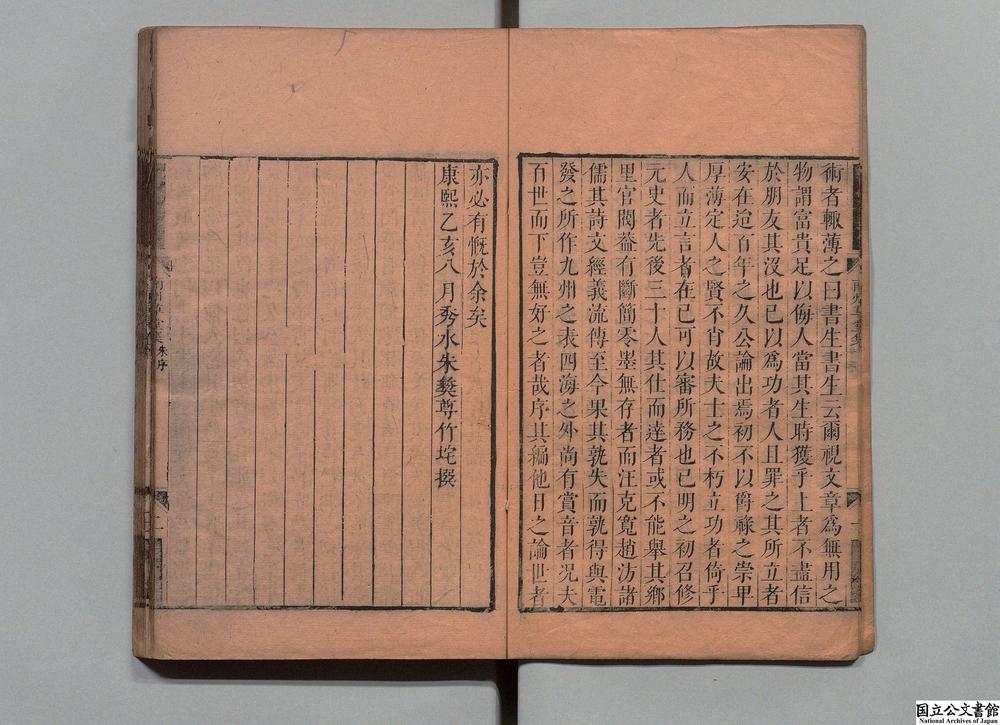 術者輙薄之曰書生書生云爾視文章為無用之
物謂富貴足以侮人當其生時獲乎上者不盡信
於朋友其沒也已以為功者人且罪之其所立者
安在迨百年之久公論出焉初不以爵祿之崇卑
厚薄定人之賢不肖故夫士之不朽立功者倚乎
人而立言者在己可以審所務也已明之初召修
元史者先後三十人其仕而達者或不能舉其鄉
里官閥葢有斷簡零墨無存者而汪克寬趙汸諸
儒其詩文經義流傳至今果其孰失而孰得與電
發之所作九州之表四海之外尚有賞音者况夫
百世而下豈無好之者哉序其編他日之論世者
亦必有慨於余矣
康熙乙亥八月秀水朱彝尊竹垞撰
朱序
国立公文書館
National Archives of Japan